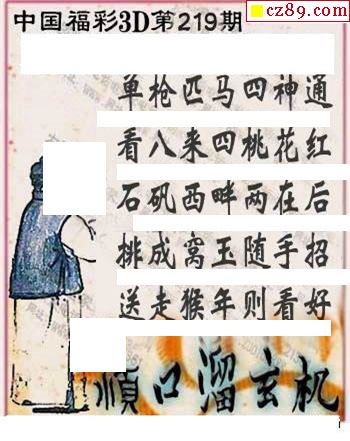 cz89.com
中国福彩3D第219期
单枪匹马四神通
看八来四桃花红
石矶西畔两在后
挑成窝玉随手招
送走猴年则看好
顺口溜玄机